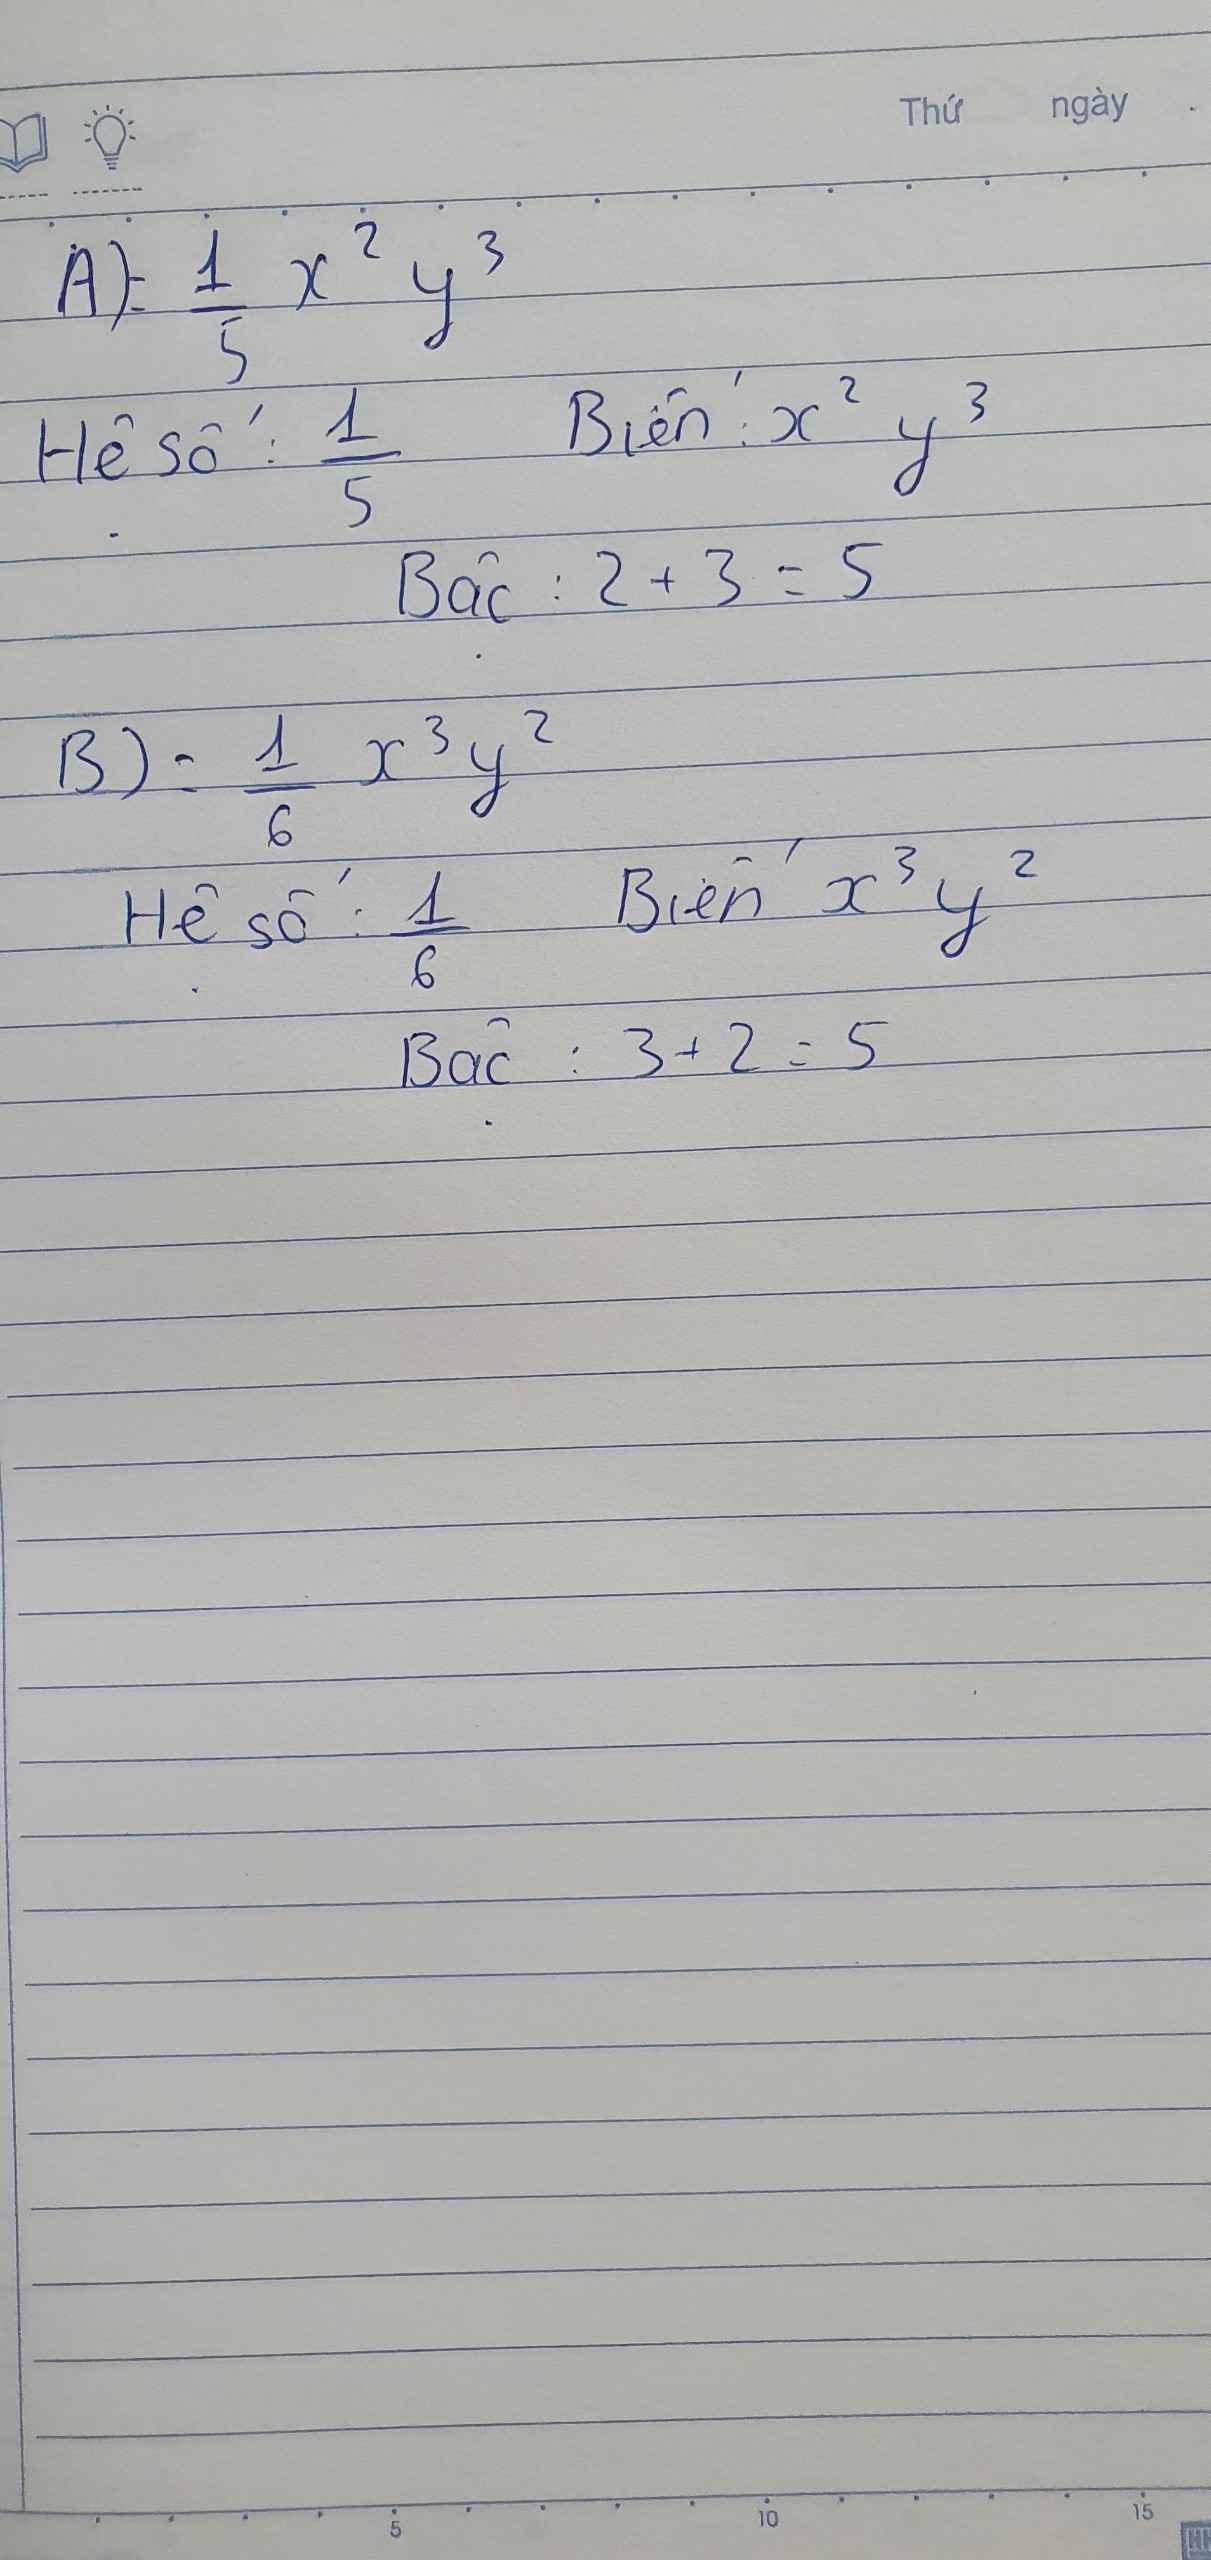 Thứ ngày .
A) = 1/5 x² y³
Hệ số : 1/5 Biến : x² y³
Bậc : 2 + 3 = 5
B) = 1/6 x³ y²
Hệ số : 1/6 Biến x³ y²
Bậc : 3 + 2 = 5
5 10 15